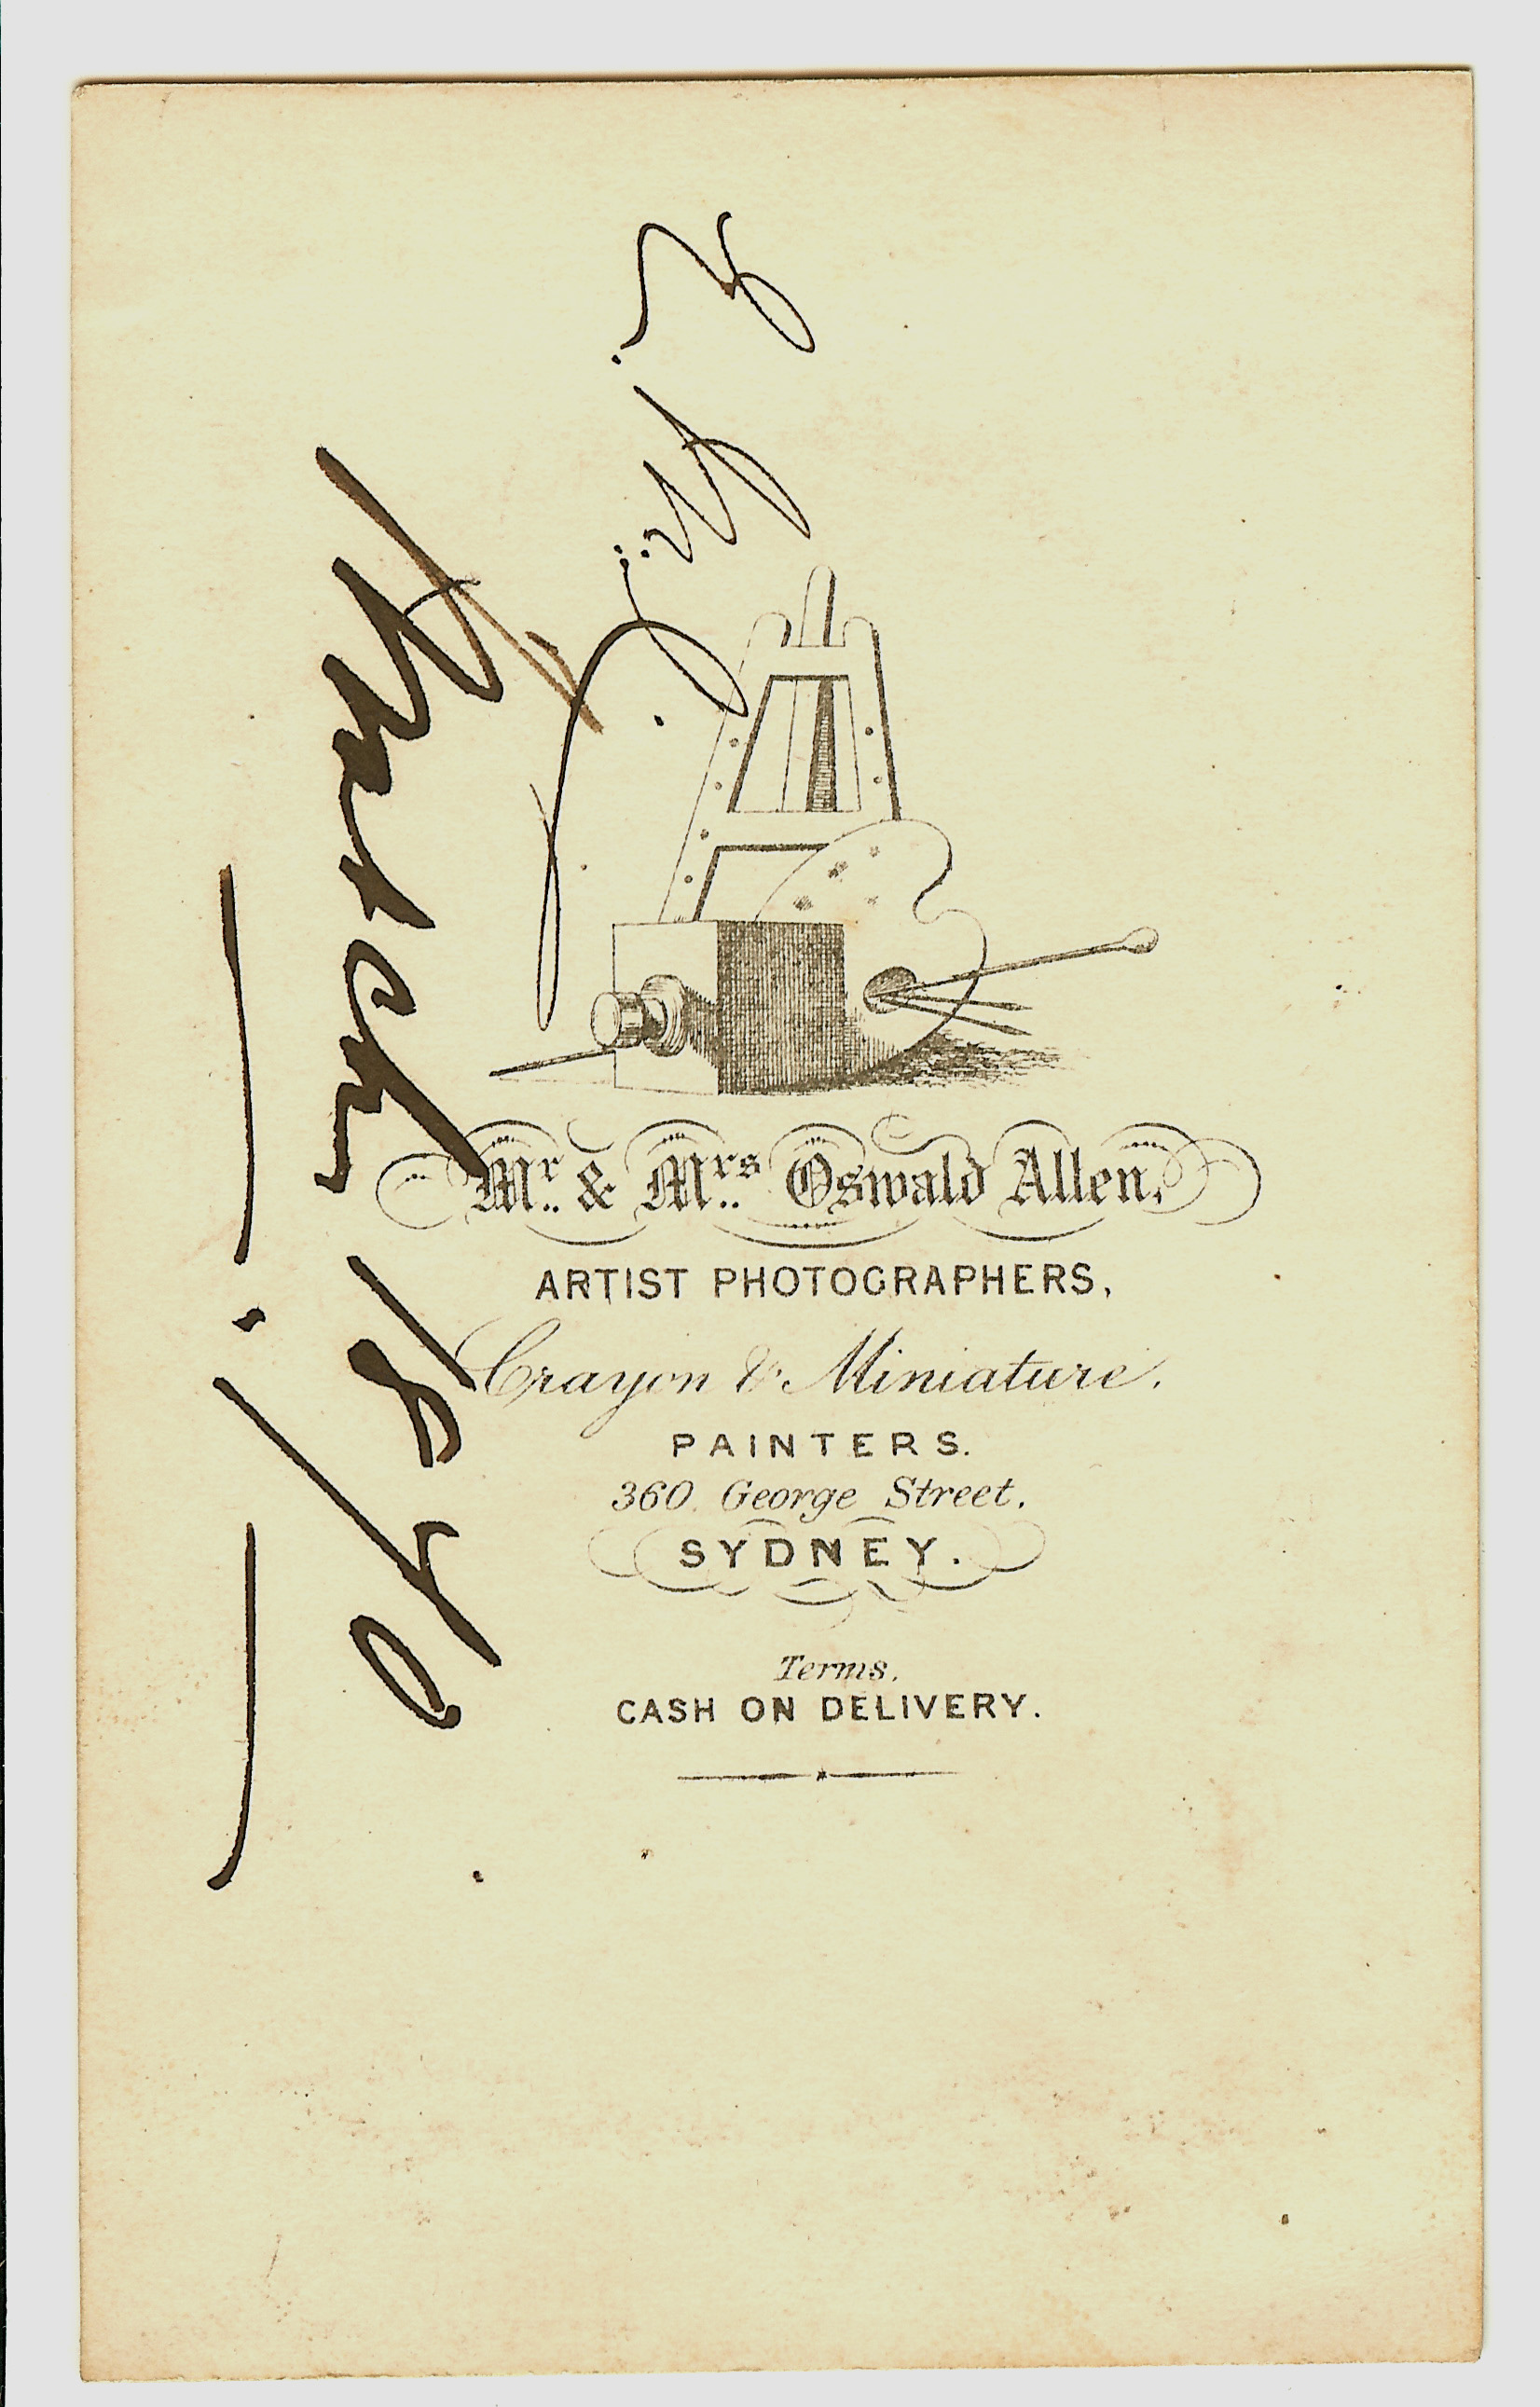 March 1870
Mr. & Mrs. Oswald Allen.
ARTIST PHOTOGRAPHERS,
Crayon & Miniature.
PAINTERS.
360. George Street.
SYDNEY.
Terms.
CASH ON DELIVERY.